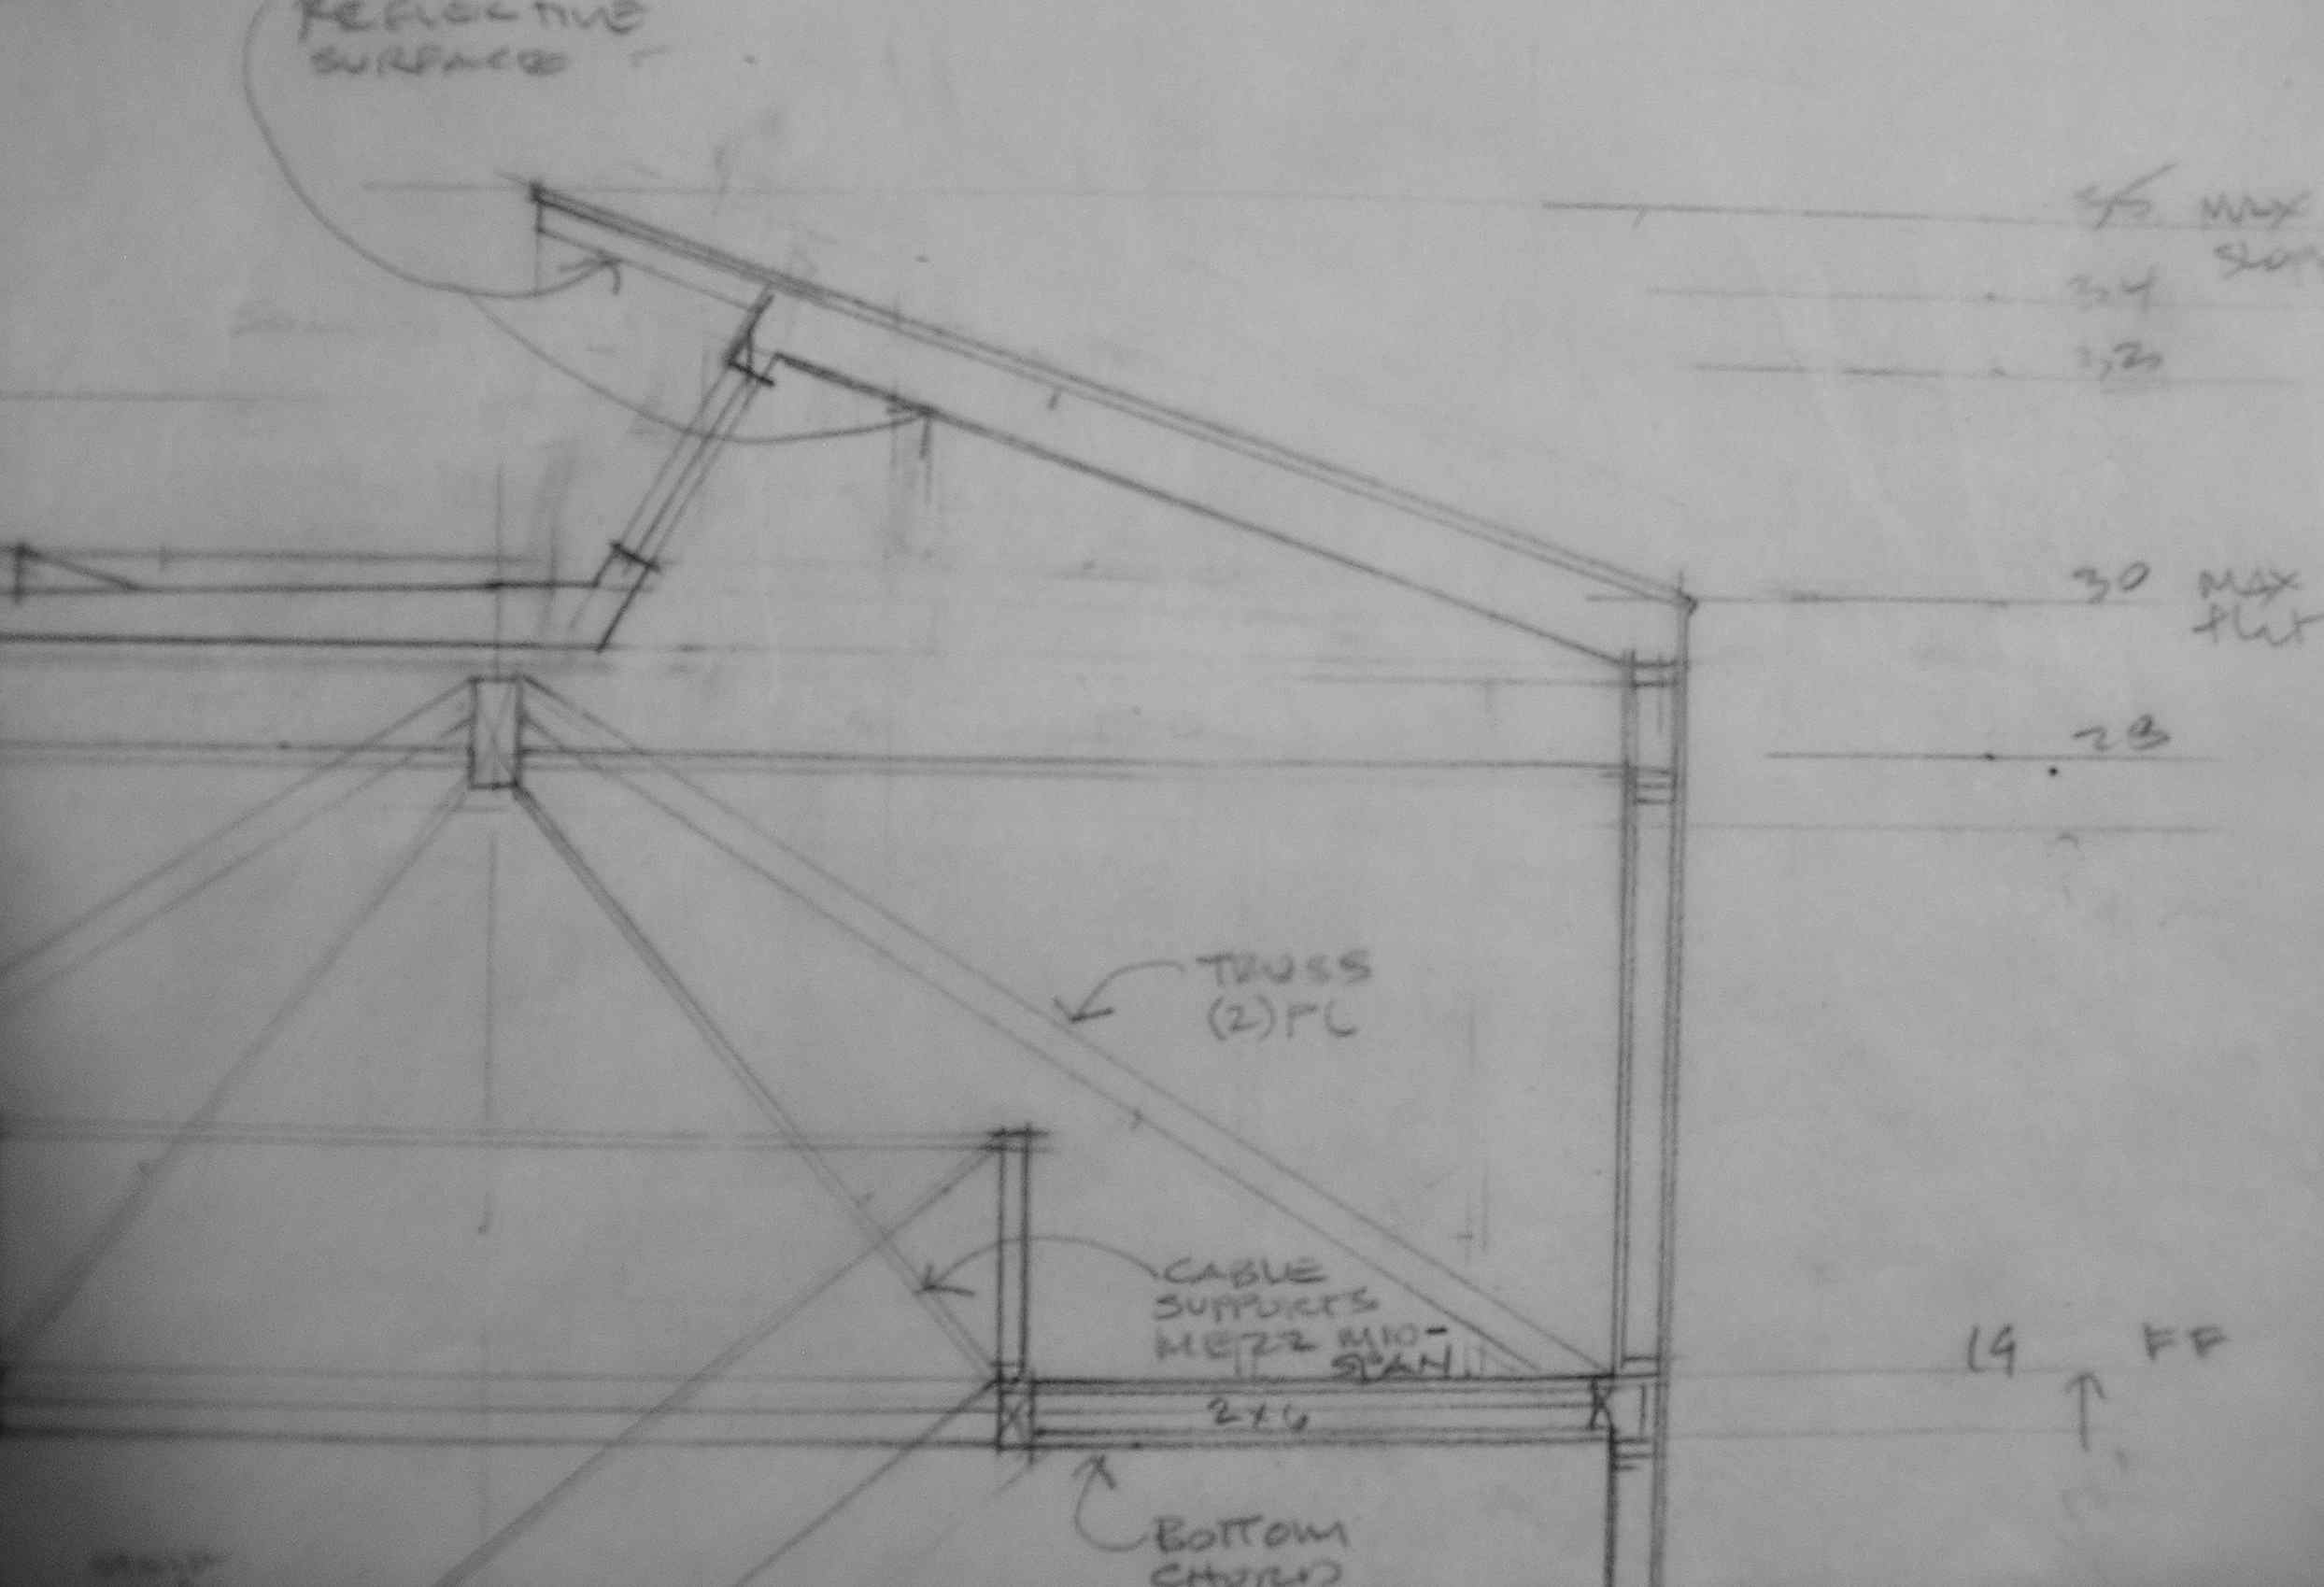 REFLECTIVE
SURFACE
35 MAX
34
30 MAX
flat
28
TRUSS
(2) PL
CABLE
SUPPORTS
MEZZ MID-
SPAN
19 FF
2x6
BOTTOM
CHORD